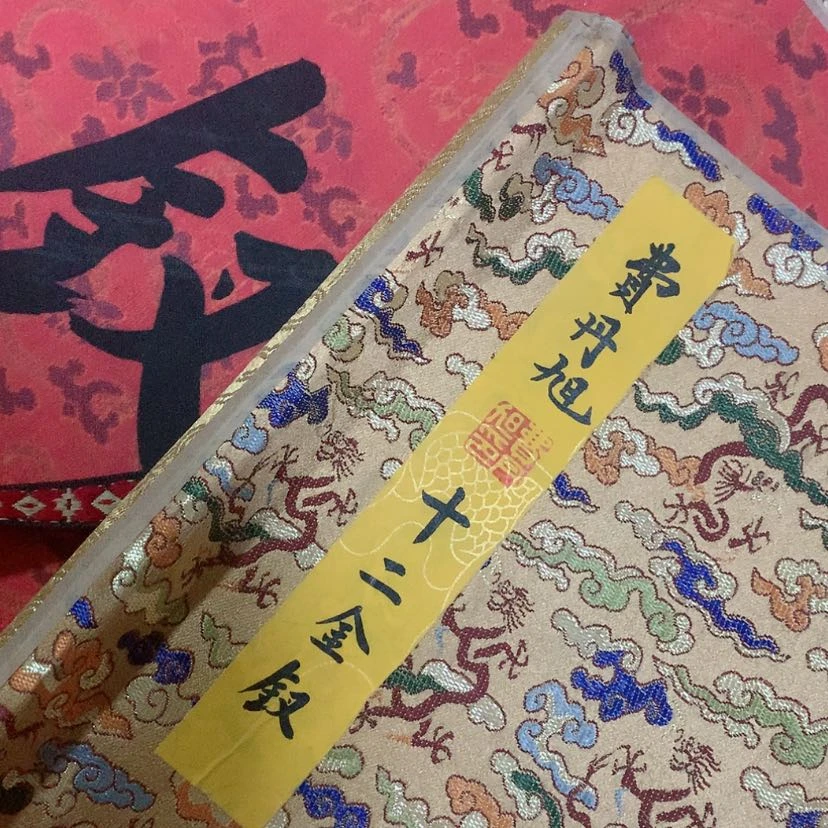 费丹旭
十二金钗